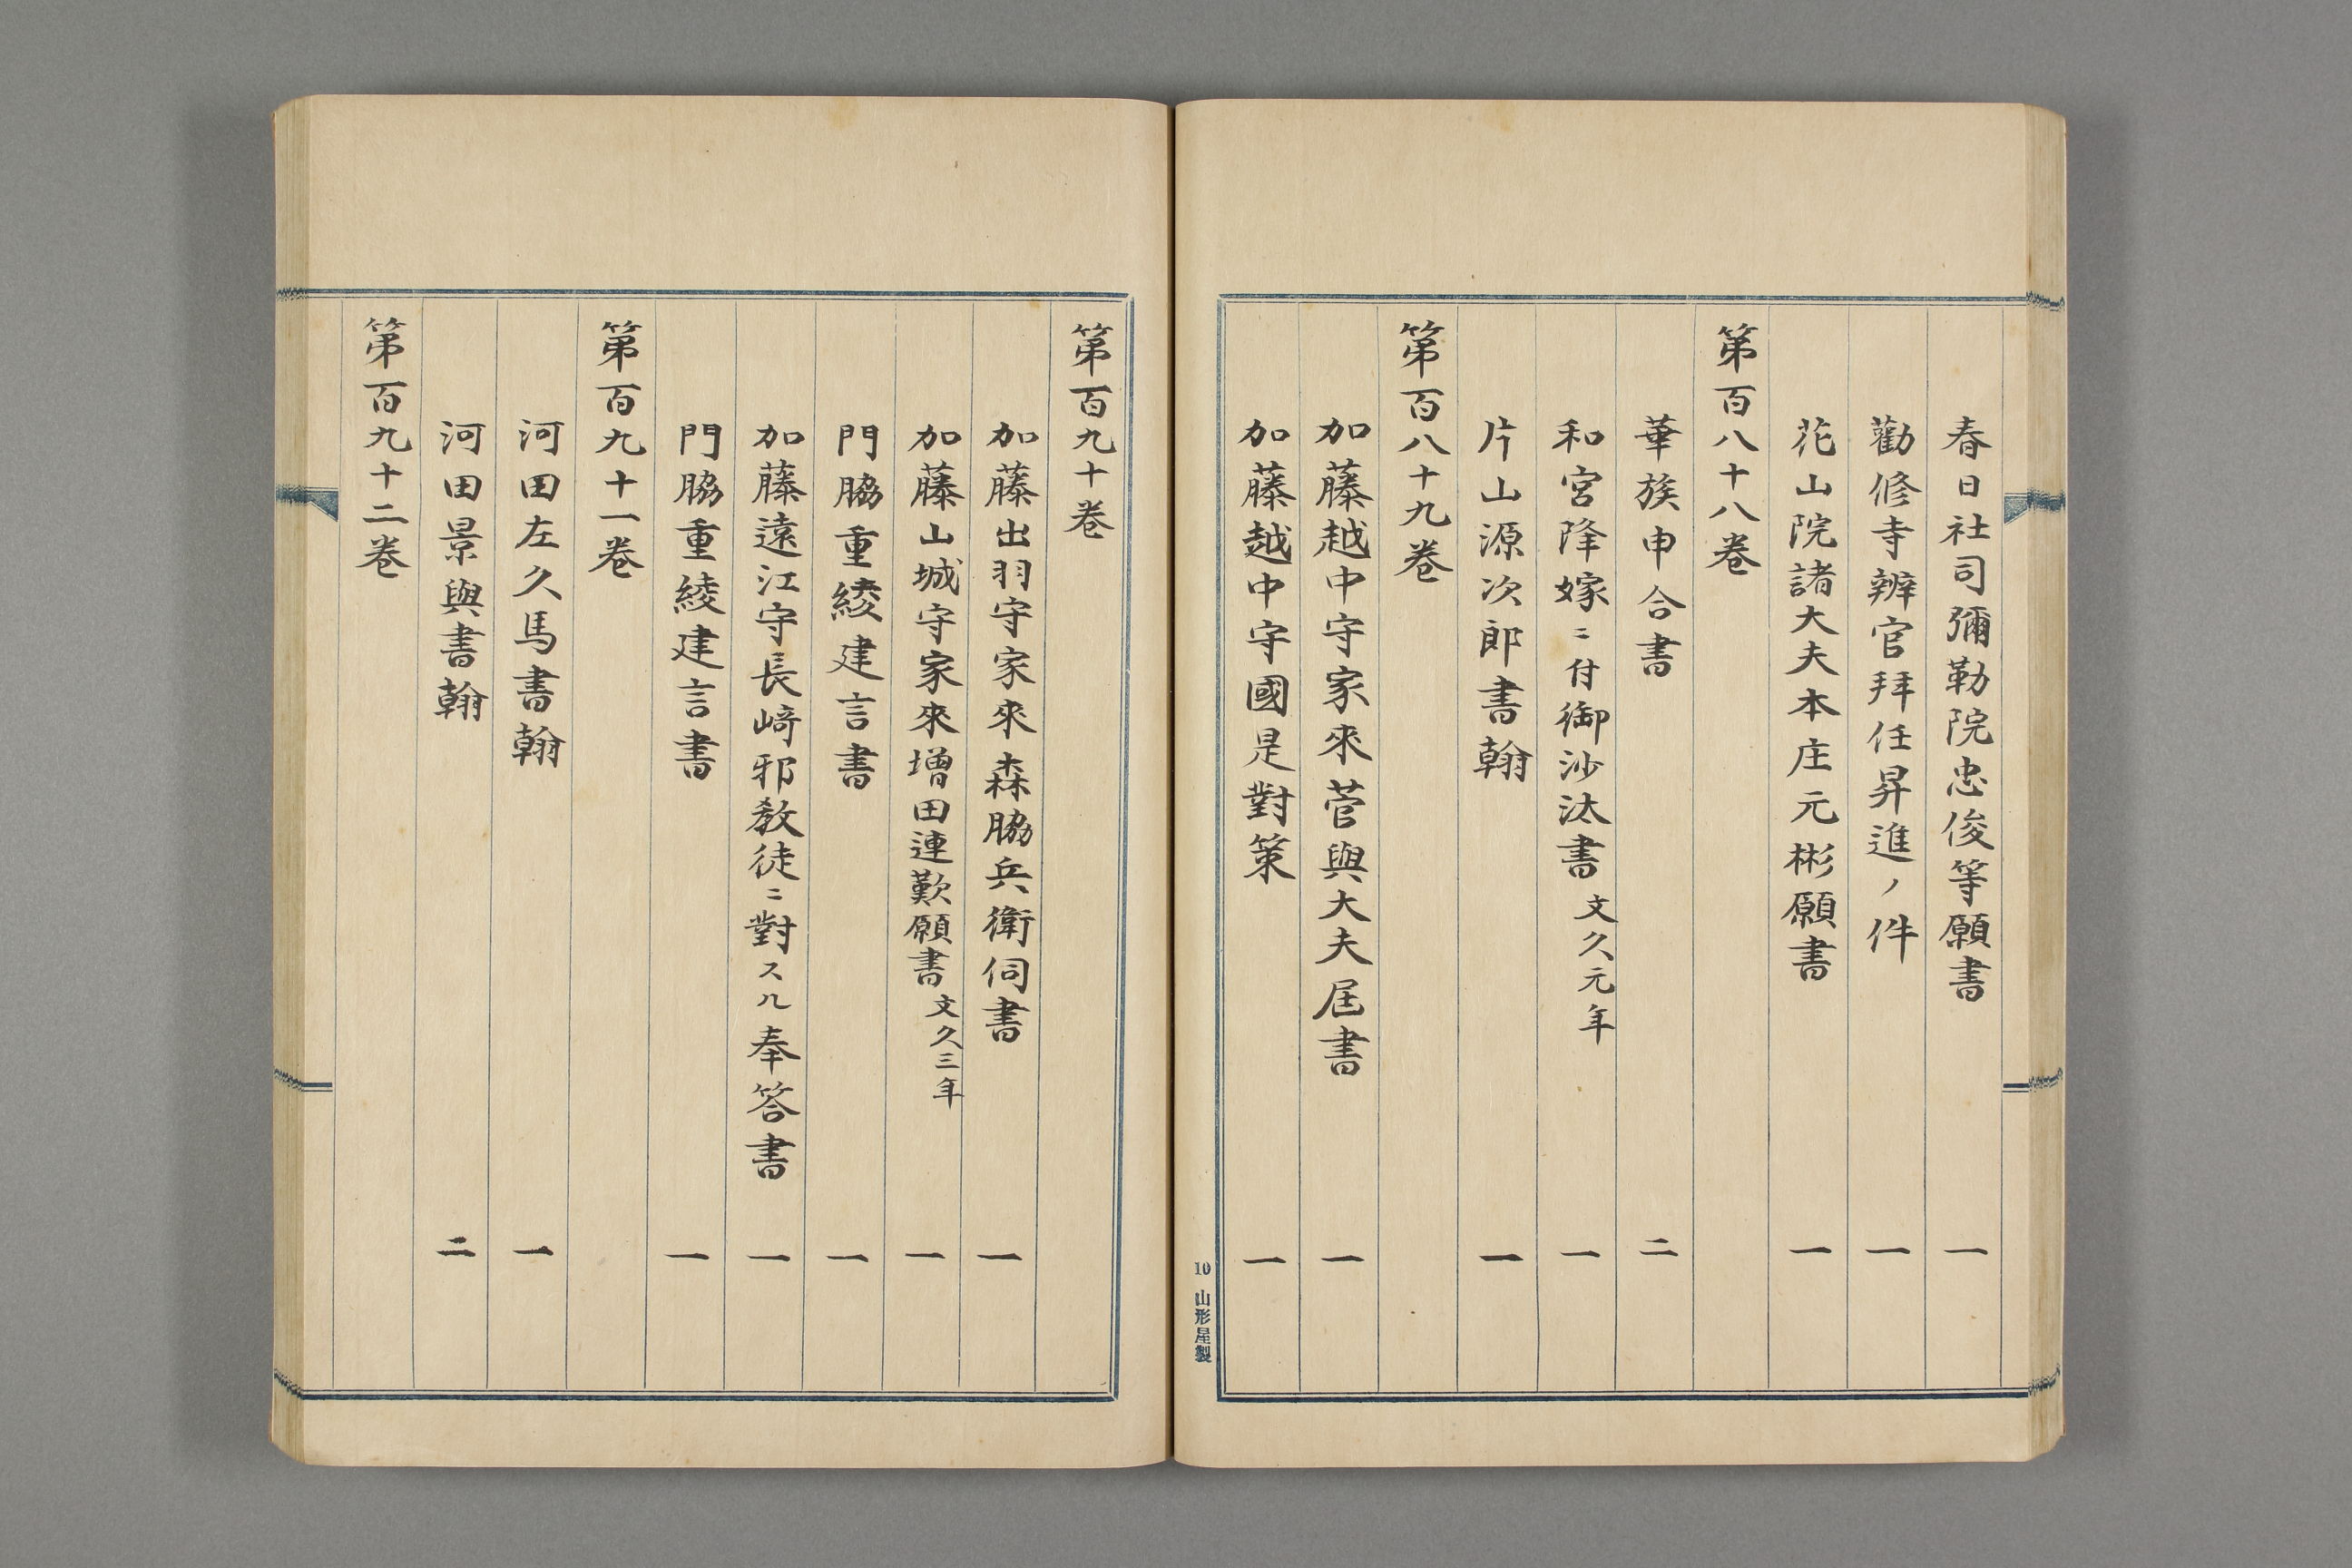 春日社司彌勒院忠俊等願書 一
勸修寺辨官拜任昇進ノ件 一
花山院諸大夫本庄元彬願書 一
第百八十八卷
華族申合書 二
和宮降嫁ニ付御沙汰書 文久元年 一
片山源次郎書翰 一
第百八十九卷
加藤越中守家來菅與大夫屆書 一
加藤越中守國是對策 一
10 山形屋製
第百九十卷
加藤出羽守家來森脇兵衛伺書 一
加藤山城守家來增田連歎願書 文久三年 一
門脇重綾建言書 一
加藤遠江守長崎邪教徒ニ對スル奉答書 一
門脇重綾建言書 一
第百九十一卷
河田左久馬書翰 一
河田景與書翰 二
第百九十二卷